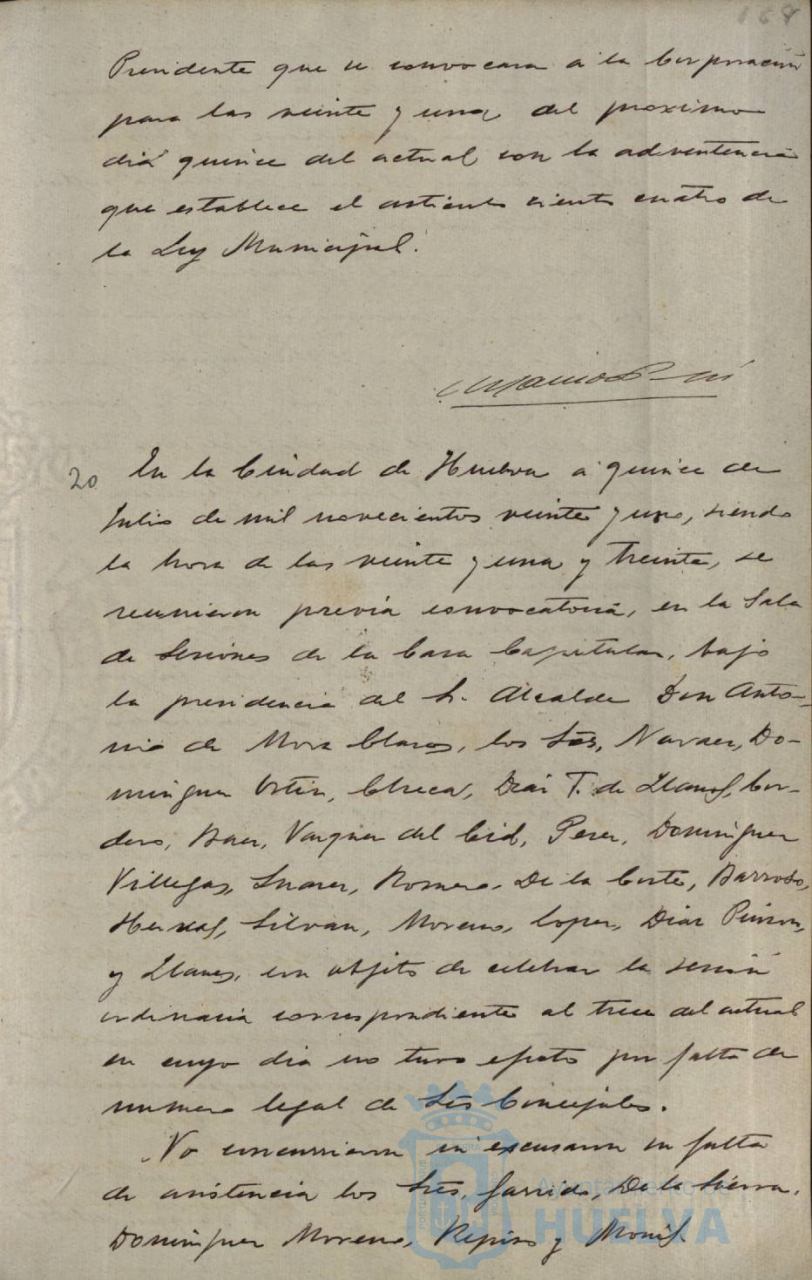 168
Presidente que se convocara a la Corporación
para las veinte y una del proximo
dia quince del actual con la advertencia
que establece el articulo ciento cuatro de
la Ley Municipal.
20 En la Ciudad de Huelva a quince de
Julio de mil novecientos veinte y uno, siendo
la hora de las veinte y una y treinta, se
reunieron previa convocatoria, en la Sala
de Sesiones de la Casa Capitular, bajo
la presidencia del Sr. Alcalde Don Anto-
nio de Mora Claros, los Sres, Narvaez, Do-
minguez Ortiz, Checa, Diaz T. de Llanos, Cor-
dero, Baez, Vazquez del Cid, Perez, Dominguez
Villegas, Suarez, Romero, De la Corte, Barroso,
Silvan, Moreno, Lopez, Diaz Pinzon,
y Llanes, con objeto de celebrar la sesión
ordinaria correspondiente al trece del actual
en cuyo dia no tuvo efecto por falta de
numero legal de Sres Concejales.
No concurrieron ni excusaron su falta
de asistencia los Sres, Garrido, De la Sierra,
Dominguez Moreno, Repiso y
Ayuntamiento de
HUELVA